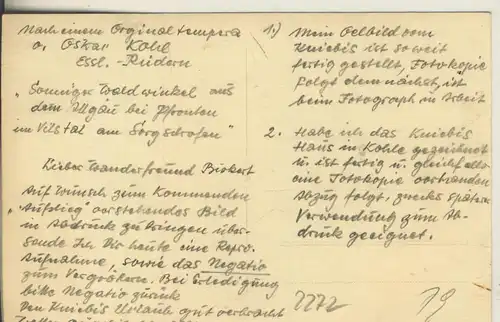 Nach einem Orginaltempera
v. Oskar Kohl
Essl.-Rüdern
„Sonniger Waldwinkel aus
dem Allgäu bei Pfronten
im Vilstal am Sorgschrofen"
Lieber Wanderfreund Birkert
Auf Wunsch zum Kommenden
„Aufstieg" vorstehendes Bild
in Abdruck zu bringen über-
sende Ich Dir heute eine Repro.
Aufnahme, sowie das Negativ
zum Vergrößern. Bei Erledigung
bitte Negativ zurück
Den Kniebis Urlaub gut verbracht
1.) Mein Oelbild vom
Kniebis ist soweit
fertig gestellt, Fotokopie
folgt demnächst, ist
beim Fotograph in Arbeit
2. Habe ich das Kniebis
Haus in Kohle gezeichnet
u. ist fertig u. gleichfalls
eine Fotokopie vorhanden
Abzug folgt, zwecks spätere
Verwendung zum Ab-
druck geeignet.
2272
19